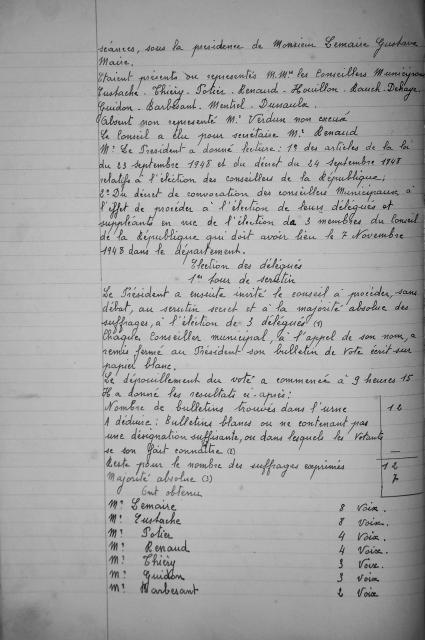 séances, sous la présidence de Monsieur Lemaire Gustave
Maire.
Etaient présents ou représentés M.Mrs les Conseillers Municipaux
Eustache - Thiéry - Potier - Renaud - Houillon - Rauch - Dehaye
Guidon - Barbesant - Mentiel - Dussaulx.
Absent non représenté Mr Verdun non excusé
Le Conseil a élu pour secrétaire Mr Renaud
Mr Le Président a donné lecture: 1° des articles de la loi
du 23 septembre 1948 et du décret du 24 septembre 1948
relatifs à l'élection des conseillers de la République;
2° Du décret de convocation des conseillers Municipaux, à
l'effet de procéder à l'élection de leurs délégués et
suppléants en vue de l'élection de 3 membres du Conseil
de la République qui doit avoir lieu le 7 Novembre
1948 dans le département.
Election des délégués
1er tour de scrutin
Le Président a ensuite invité le conseil à procéder, sans
débat, au scrutin secret et à la majorité absolue des
suffrages, à l'élection de 3 délégués (1)
Chaque Conseiller municipal, à l'appel de son nom, a
remis fermé au Président son bulletin de Vote écrit sur
papier blanc.
Le dépouillement du voté a commencé à 9 heures 15
Il a donné les resultats ci-après:
Nombre de bulletins trouvés dans l'urne 12
A déduire: Bulletins blancs ou ne contenant pas
une désignation suffisante, ou dans lesquels les Votants
se son fait connaître (2) —
Reste pour le nombre des suffrages exprimés 12
Majorité absolue (3) 7
Ont obtenu
Mr Lemaire 8 Voix.
Mr Eustache 8 Voix.
Mr Potier 4 Voix.
Mr Renaud 4 Voix.
Mr Thiéry 3 Voix.
Mr Guidon 3 Voix
Mr Barbesant 2 Voix